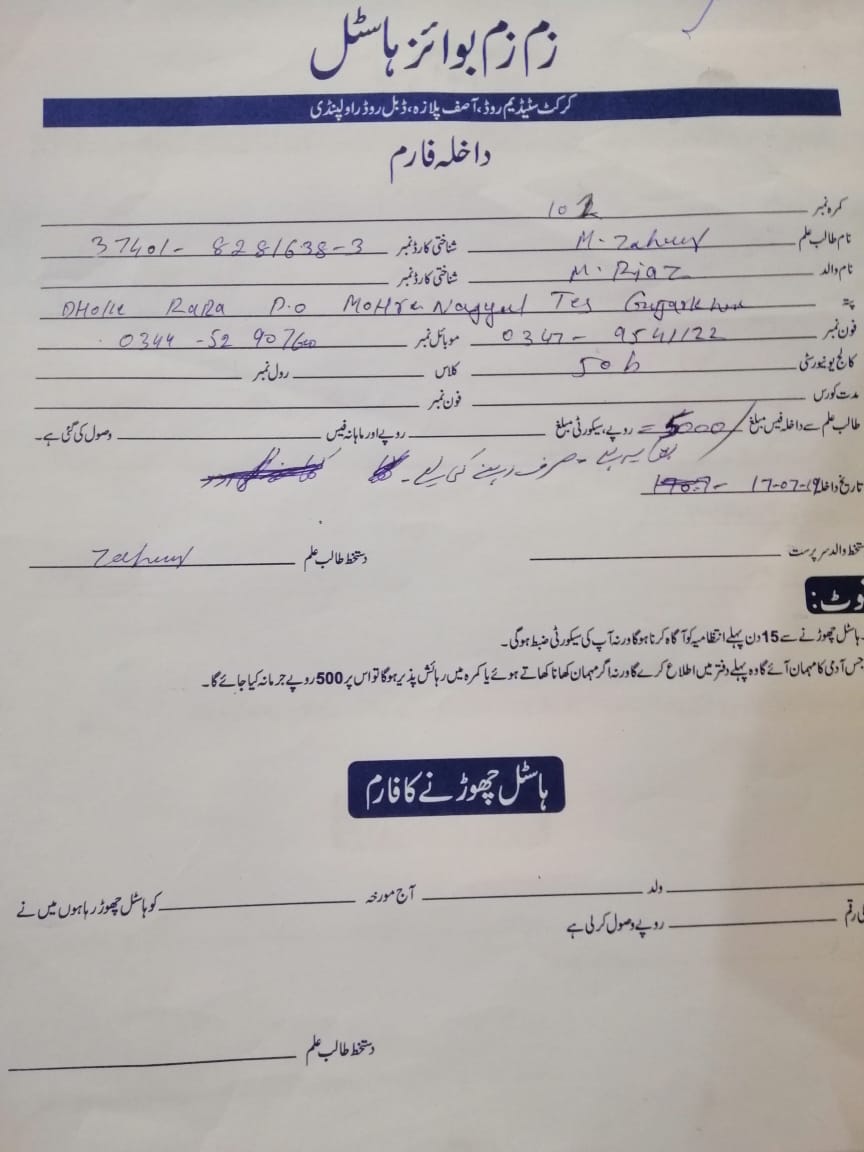 زم زم بوائز ہاسٹل
کرکٹ سٹیڈیم روڈ، آصف پلازہ، ڈبل روڈ راولپنڈی
داخلہ فارم
کمرہ نمبر 102
نام طالب علم M. Zahur شناختی کارڈ نمبر 37401-8281638-3
نام والد M. Riaz شناختی کارڈ نمبر
پتہ DHoke RaRa P.o MoHra Nagyal Tes Gujarkhan
فون نمبر 0347-9541122 موبائل نمبر 0344-52907
کالج یونیورسٹی Job کلاس رول نمبر
مدت کورس فون نمبر
طالب علم سے داخلہ فیس مبلغ 5000/= روپے، سیکورٹی مبلغ روپے اور ماہانہ فیس وصول کی گئی ہے۔
صرف رہنے کی لیے۔
تاریخ داخلہ 17-07-19
دستخط والد سرپرست دستخط طالب علم Zahur
نوٹ:
ہاسٹل چھوڑنے سے 15 دن پہلے انتظامیہ کو آگاہ کرنا ہوگا ورنہ آپ کی سیکورٹی ضبط ہوگی۔
جس آدمی کا مہمان آئے گا وہ پہلے دفتر میں اطلاع کرے گا ورنہ اگر مہمان کھانا کھاتے ہوئے یا کمرہ میں رہائش پذیر ہوگا تو اس پر 500 روپے جرمانہ کیا جائے گا۔
ہاسٹل چھوڑنے کا فارم
ولد آج مورخہ کو ہاسٹل چھوڑ رہا ہوں میں نے
رقم روپے وصول کر لی ہے
دستخط طالب علم